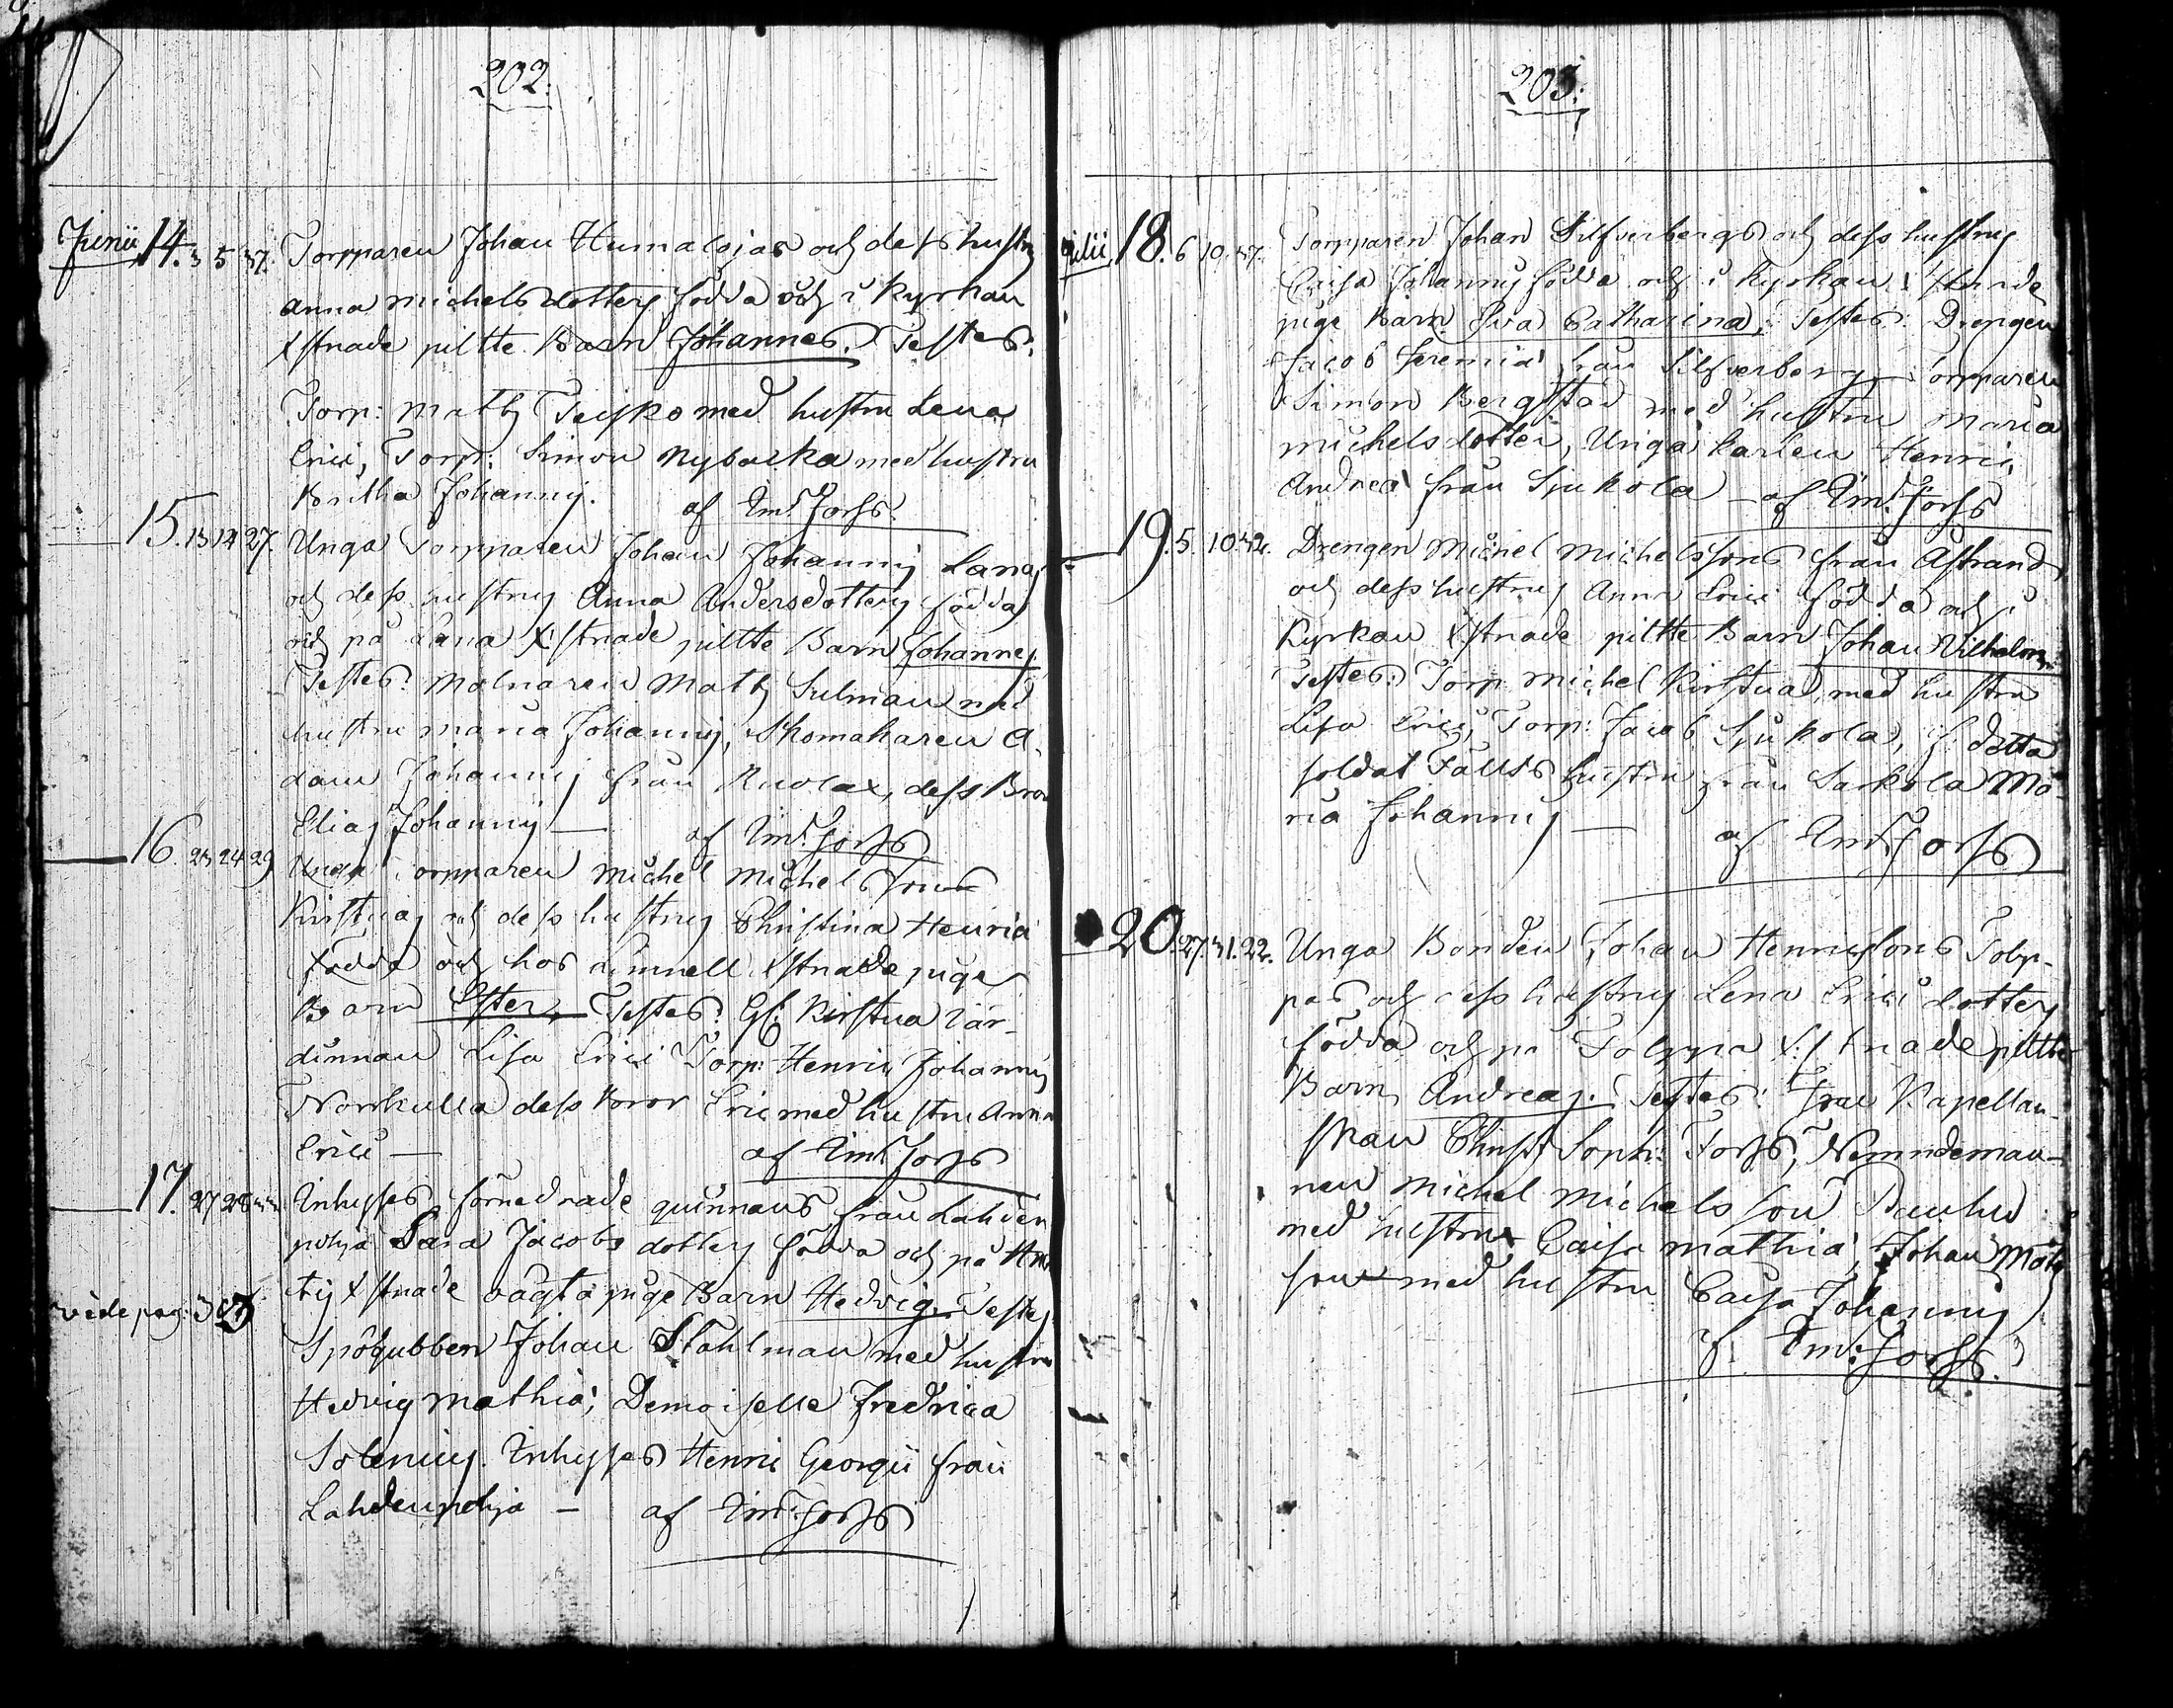 202.
Junii 14. 3 5 37. Torpparen Johan Humalojas och dess hustrus
Anna Michelsdotters födda och i Kyrkan
Xstnade piltte Barn Johannes. Testes:
Torp: Matts Teisko med hustru Lena
Erici, Torp: Simon Nybacka med hustru
Britha Johannis. af Em: Forss
15. 13 14 27. Unga Torpparen Johan Johannis Lanas
och dess hustrus Anna Andersdotters födda
och på Lana X:stnade piltte Barn Johannes.
Testes: Molnaren Matts Sulman med
hustru Maria Johannis, Skomakaren A-
dam Johannis från Ruolax, dess Bror
Elias Johannis — af Em: Forss
16. 23 24 29 Unga Torpparen Michel Michelssons
Kirstuas och dess hustrus Christina Henrici
födda och hos Limnell Xstnade piga
Barn Ester. Testes: Gl: Kirstua Vär-
dinnan Lisa Erici Torp: Henric Johannis
Norrkulla dess Bror Eric med hustru Anna
Erici — af Em: Forss
17. 27 28 Inhyses förnedrade quinnans från Lahden
pohja Sara Jacobs dotters födda och på
tis Xstnade oägta piga Barn Hedvig. Testes
vide pag: 3
Spögubben Johan Stahlman med hustru
Hedvig Mathiæ, Demoiselle Fredrica
Solenius. Inhyses Henric Georgii från
Lahdenpohja — af Em: Forss
203.
Julii 18. 6 10. 37. Torpparen Johan Silfverbergs och dess hustrus
Caisa Johannis födda och i Kyrkan Xstnade
piga Barn Eva Catharina; Testes: Drengen
Jacob Jeremiæ från Silfverberg, Torpparen
Simon Bergstad med hustru Maria
Michelsdotter, Unga karlen Henric
Andreæ från Sjukola — af Em: Forss
19. 5. 10. 32. Drengen Michel Michelssons från Åstrand
och dess hustrus Anna Erici födda och i
Kyrkan Xstnade piltte Barn Johan Vilhelm.
Testes: Torp: Michel Kirstua med hustru
Lisa Erici, Torp: Jacob Sjukola, f: detta
soldat Fälts hustru från Sarkola Ma-
ria Johannis — af Em: Forss
20. 27. 31. 22. Unga Bonden Johan Henricssons Tolp-
pas och dess hustrus Lena Erici dotters
födda och på Tolppa X:stnade piltte
Barn Andreas. Testes: Frau Kapellan-
skan Christ: Soph: Forss, Nemndeman-
nen Michel Michelsson Pauhu
med hustru Caisa Mathiæ, Johan Mats
son med hustru Caisa Johannis
af Em: Forss.